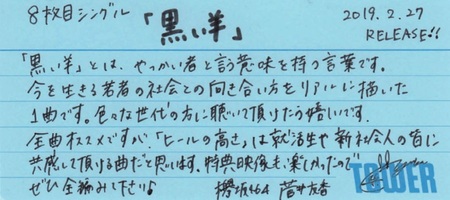 8枚目シングル 「黒い羊」 2019.2.27 RELEASE!!
「黒い羊」とは、やっかい者と言う意味を持つ言葉です。
今を生きる若者の社会との向き合い方をリアルに描いた
1曲です。色々な世代の方に聴いて頂けたら嬉しいです。
全曲オススメですが、「ヒールの高さ」は就活生や新社会人の皆に
共感して頂ける曲だと思います。特典映像も楽しかったので
ぜひ全編みて下さい♪ 欅坂46 菅井友香
TOWER